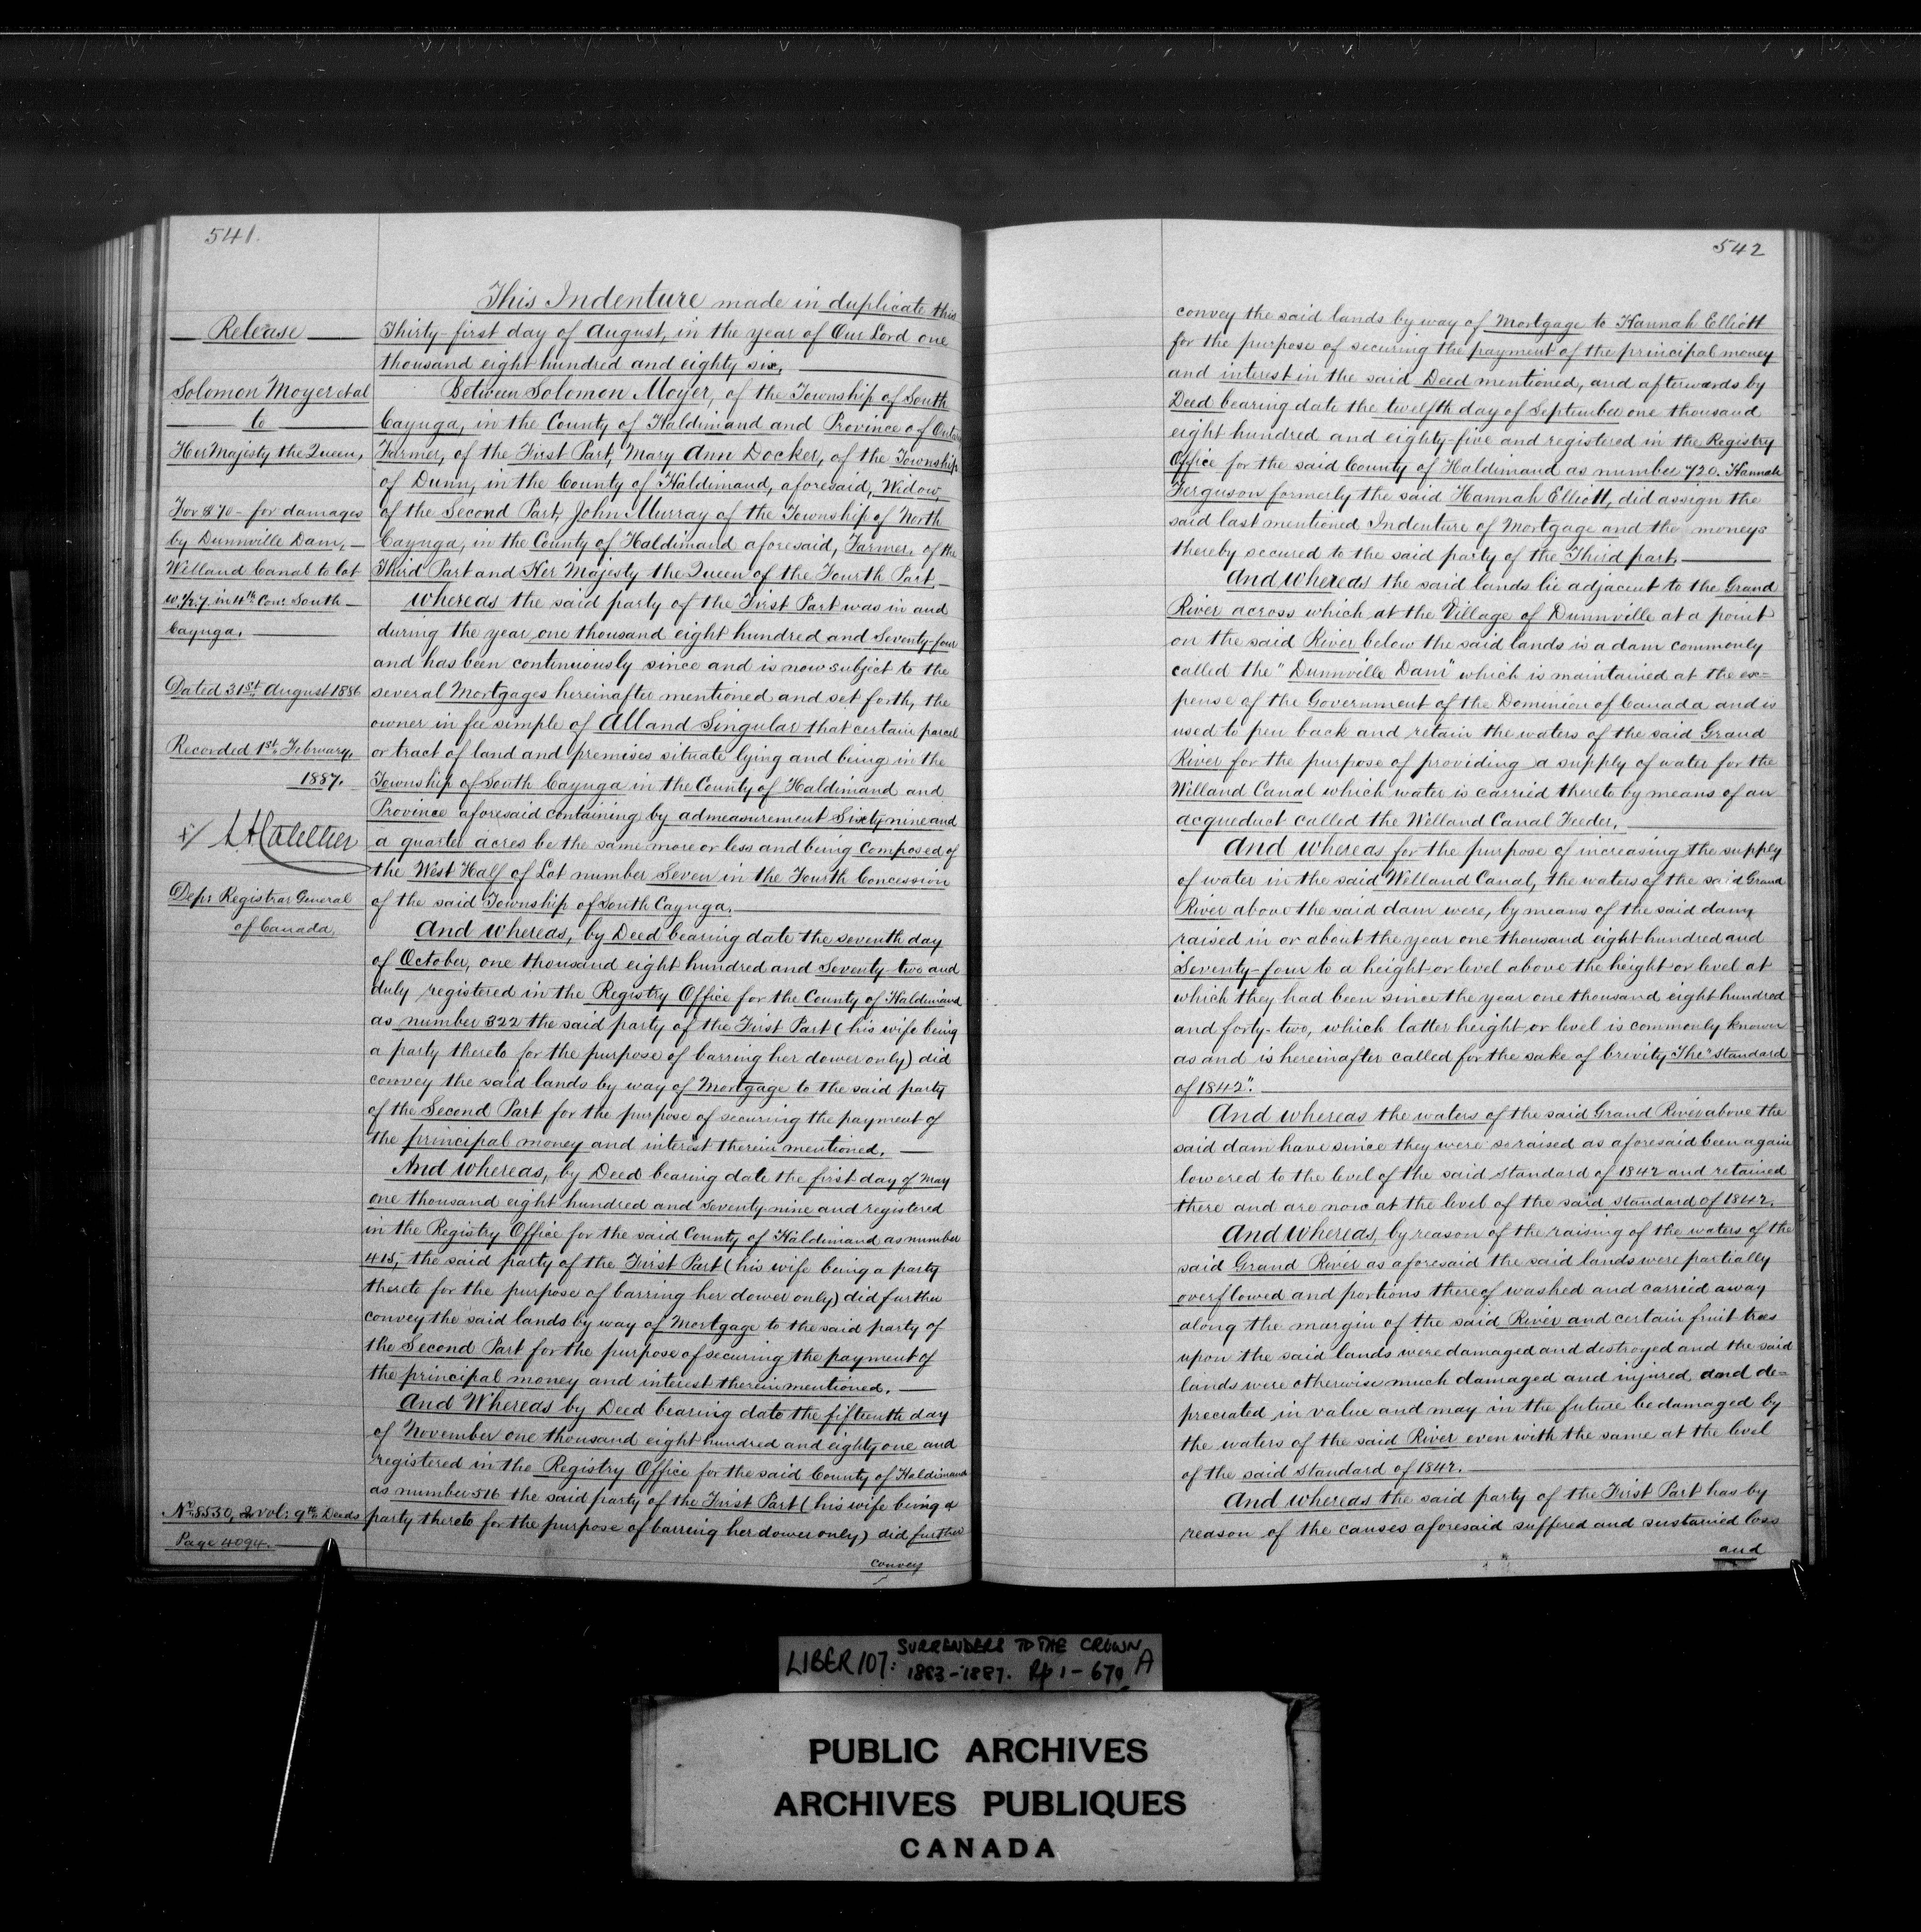 541.
Release
Solomon Moyer et al
to
Her Majesty the Queen,
For $70 - for damages
by Dunnville Dam,
Welland Canal to lot
W.1/2.7. in 4th Con: South
Cayuga.
Dated 31st August 1886
Recorded 1st February,
1887.
Depy Registrar General
of Canada.
No 8530, 2 vol: 9th Deeds
Page 4094.
This Indenture made in duplicate this
Thirty-first day of August, in the year of Our Lord one
thousand eight hundred and eighty six,
Between Solomon Moyer, of the Township of South
Cayuga, in the County of Haldimand and Province of Ontario
Farmer, of the First Part, Mary Ann Docker, of the Township
of Dunn, in the County of Haldimand, aforesaid, Widow,
of the Second Part, John Murray of the Township of North
Cayuga, in the County of Haldimand aforesaid, Farmer, of the
Third Part and Her Majesty the Queen of the Fourth Part,
Whereas the said party of the First Part was in and
during the year one thousand eight hundred and seventy-four
and has been continuously since and is now subject to the
several Mortgages hereinafter mentioned and set forth, the
owner in fee simple of All and Singular that certain parcel
or tract of land and premises situate lying and being in the
Township of South Cayuga in the County of Haldimand and
Province aforesaid containing by admeasurement Sixty-nine and
a quarter acres be the same more or less and being composed of
the West Half of Lot number Seven in the Fourth Concession
of the said Township of South Cayuga.
And Whereas, by Deed bearing date the seventh day
of October, one thousand eight hundred and Seventy-two and
duly registered in the Registry Office for the County of Haldimand
as number 322 the said party of the First Part (his wife being
a party thereto for the purpose of barring her dower only) did
convey the said lands by way of Mortgage to the said party
of the Second Part for the purpose of securing the payment of
the principal money and interest therein mentioned.
And Whereas, by Deed bearing date the first day of May
one thousand eight hundred and seventy-nine and registered
in the Registry Office for the said County of Haldimand as number
415, the said party of the First Part (his wife being a party
thereto for the purpose of barring her dower only) did further
convey the said lands by way of Mortgage to the said party of
the Second Part for the purpose of securing the payment of
the principal money and interest therein mentioned.
And Whereas by Deed bearing date the fifteenth day
of November one thousand eight hundred and eighty one and
registered in the Registry Office for the said County of Haldimand
as number 516 the said party of the First Part (his wife being a
party thereto for the purpose of barring her dower only) did further
convey
542
convey the said lands by way of Mortgage to Hannah Elliott
for the purpose of securing the payment of the principal money
and interest in the said Deed mentioned, and afterwards by
Deed bearing date the twelfth day of September one thousand
eight hundred and eighty-five and registered in the Registry
Office for the said County of Haldimand as number 720. Hannah
Ferguson formerly the said Hannah Elliott, did assign the
said last mentioned Indenture of Mortgage and the moneys
thereby secured to the said party of the Third part.
And Whereas the said lands lie adjacent to the Grand
River across which at the Village of Dunnville at a point
on the said River below the said lands is a dam commonly
called the "Dunnville Dam" which is maintained at the ex=
pense of the Government of the Dominion of Canada and is
used to pen back and retain the waters of the said Grand
River for the purpose of providing a supply of water for the
Welland Canal which water is carried thereto by means of an
acqueduct called the Welland Canal Feeder.
And Whereas for the purpose of increasing the supply
of water in the said Welland Canal, the waters of the said Grand
River above the said dam were, by means of the said dam,
raised in or about the year one thousand eight hundred and
Seventy-four to a height or level above the height or level at
which they had been since the year one thousand eight hundred
and forty-two, which latter height or level is commonly known
as and is hereinafter called for the sake of brevity The "Standard
of 1842".
And whereas the waters of the said Grand River above the
said dam have since they were so raised as aforesaid been again
lowered to the level of the said standard of 1842 and retained
there and are now at the level of the said standard of 1842.
And Whereas, by reason of the raising of the waters of the
said Grand River as aforesaid the said lands were partially
overflowed and portions thereof washed and carried away
along the margin of the said River and certain fruit trees
upon the said lands were damaged and destroyed and the said
lands were otherwise much damaged and injured and de=
preciated in value and may in the future be damaged by
the waters of the said River even with the same at the level
of the said Standard of 1842.
And whereas the said party of the First Part has by
reason of the causes aforesaid suffered and sustained loss
and
LIBER 107: SURRENDERS TO THE CROWN
1883-1887. Pp 1-670 A
PUBLIC ARCHIVES
ARCHIVES PUBLIQUES
CANADA